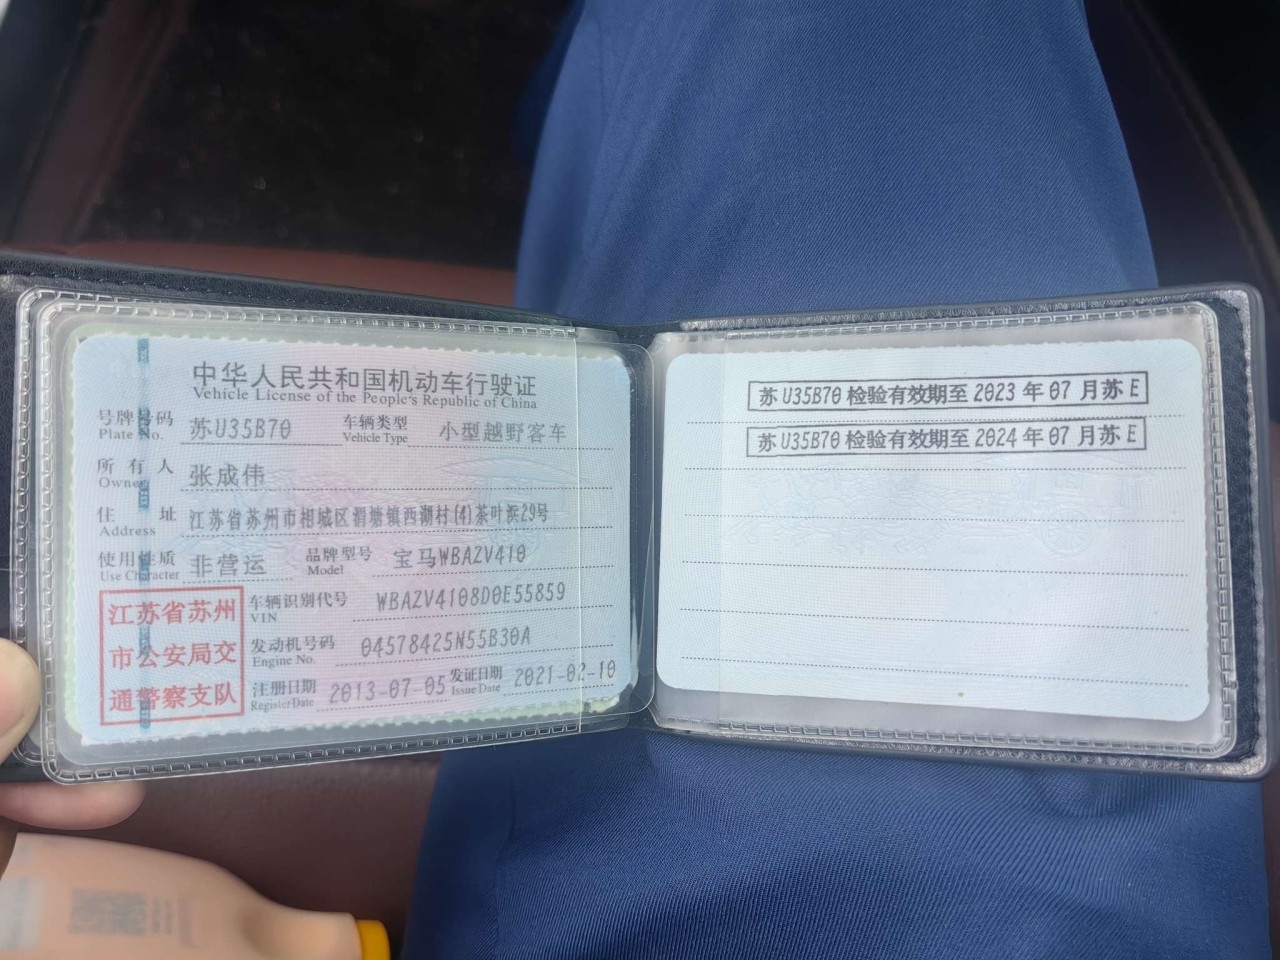 中华人民共和国机动车行驶证
Vehicle License of the People's Republic of China
号牌号码 苏U35B70 车辆类型 小型越野客车
Plate No. Vehicle Type
所有人 张成伟
Owner
住址 江苏省苏州市相城区渭塘镇西湖村(4)茶叶浜29号
Address
使用性质 非营运 品牌型号 宝马WBAZV410
Use Character Model
车辆识别代号 WBAZV4108D0E55859
VIN
发动机号码 04578425N55B30A
Engine No.
注册日期 2013-07-05 发证日期 2021-02-10
Register Date Issue Date
江苏省苏州
市公安局交
通警察支队
苏U35B70检验有效期至2023年07月苏E
苏U35B70检验有效期至2024年07月苏E